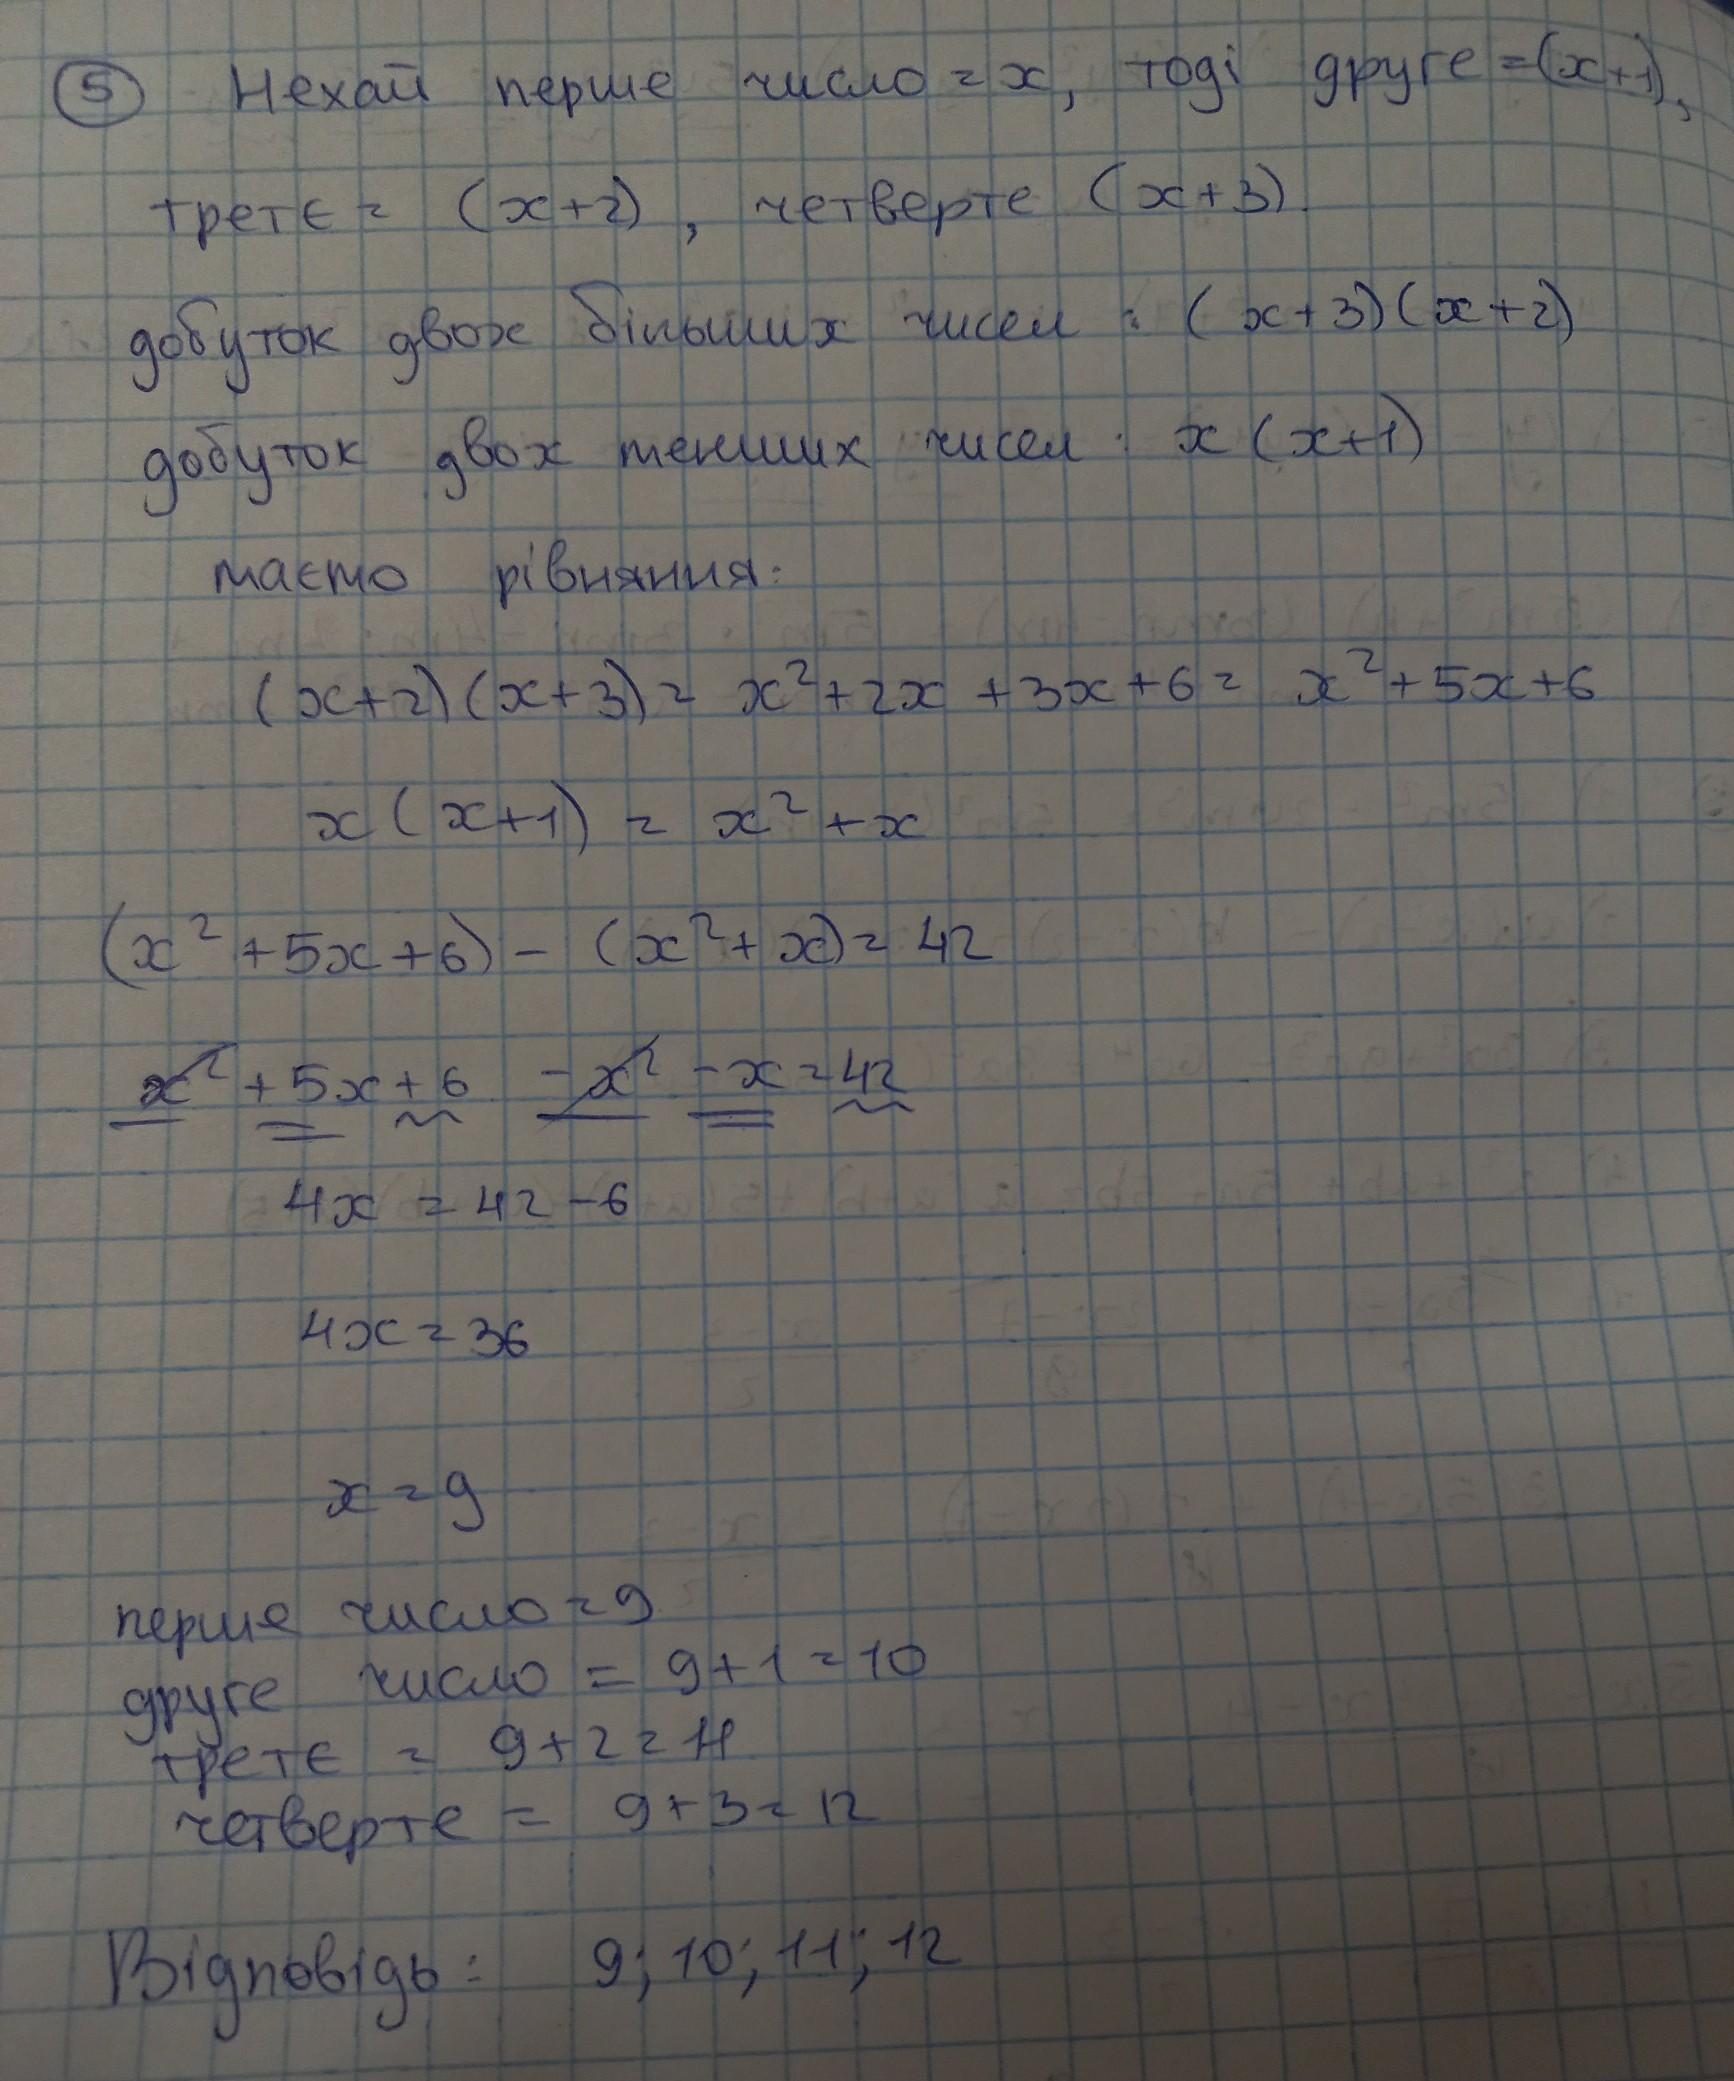 5 Нехай перше число = x, тоді друге = (x+1),
третє = (x+2), четверте (x+3).
добуток двох більших чисел : (x+3)(x+2)
добуток двох менших чисел : x(x+1)
маємо рівняння:
(x+2)(x+3) = x² + 2x + 3x + 6 = x² + 5x + 6
x(x+1) = x² + x
(x² + 5x + 6) - (x² + x) = 42
x² + 5x + 6 - x² - x = 42
4x = 42 - 6
4x = 36
x = 9
перше число = 9
друге число = 9 + 1 = 10
третє = 9 + 2 = 11
четверте = 9 + 3 = 12
Відповідь: 9; 10; 11; 12